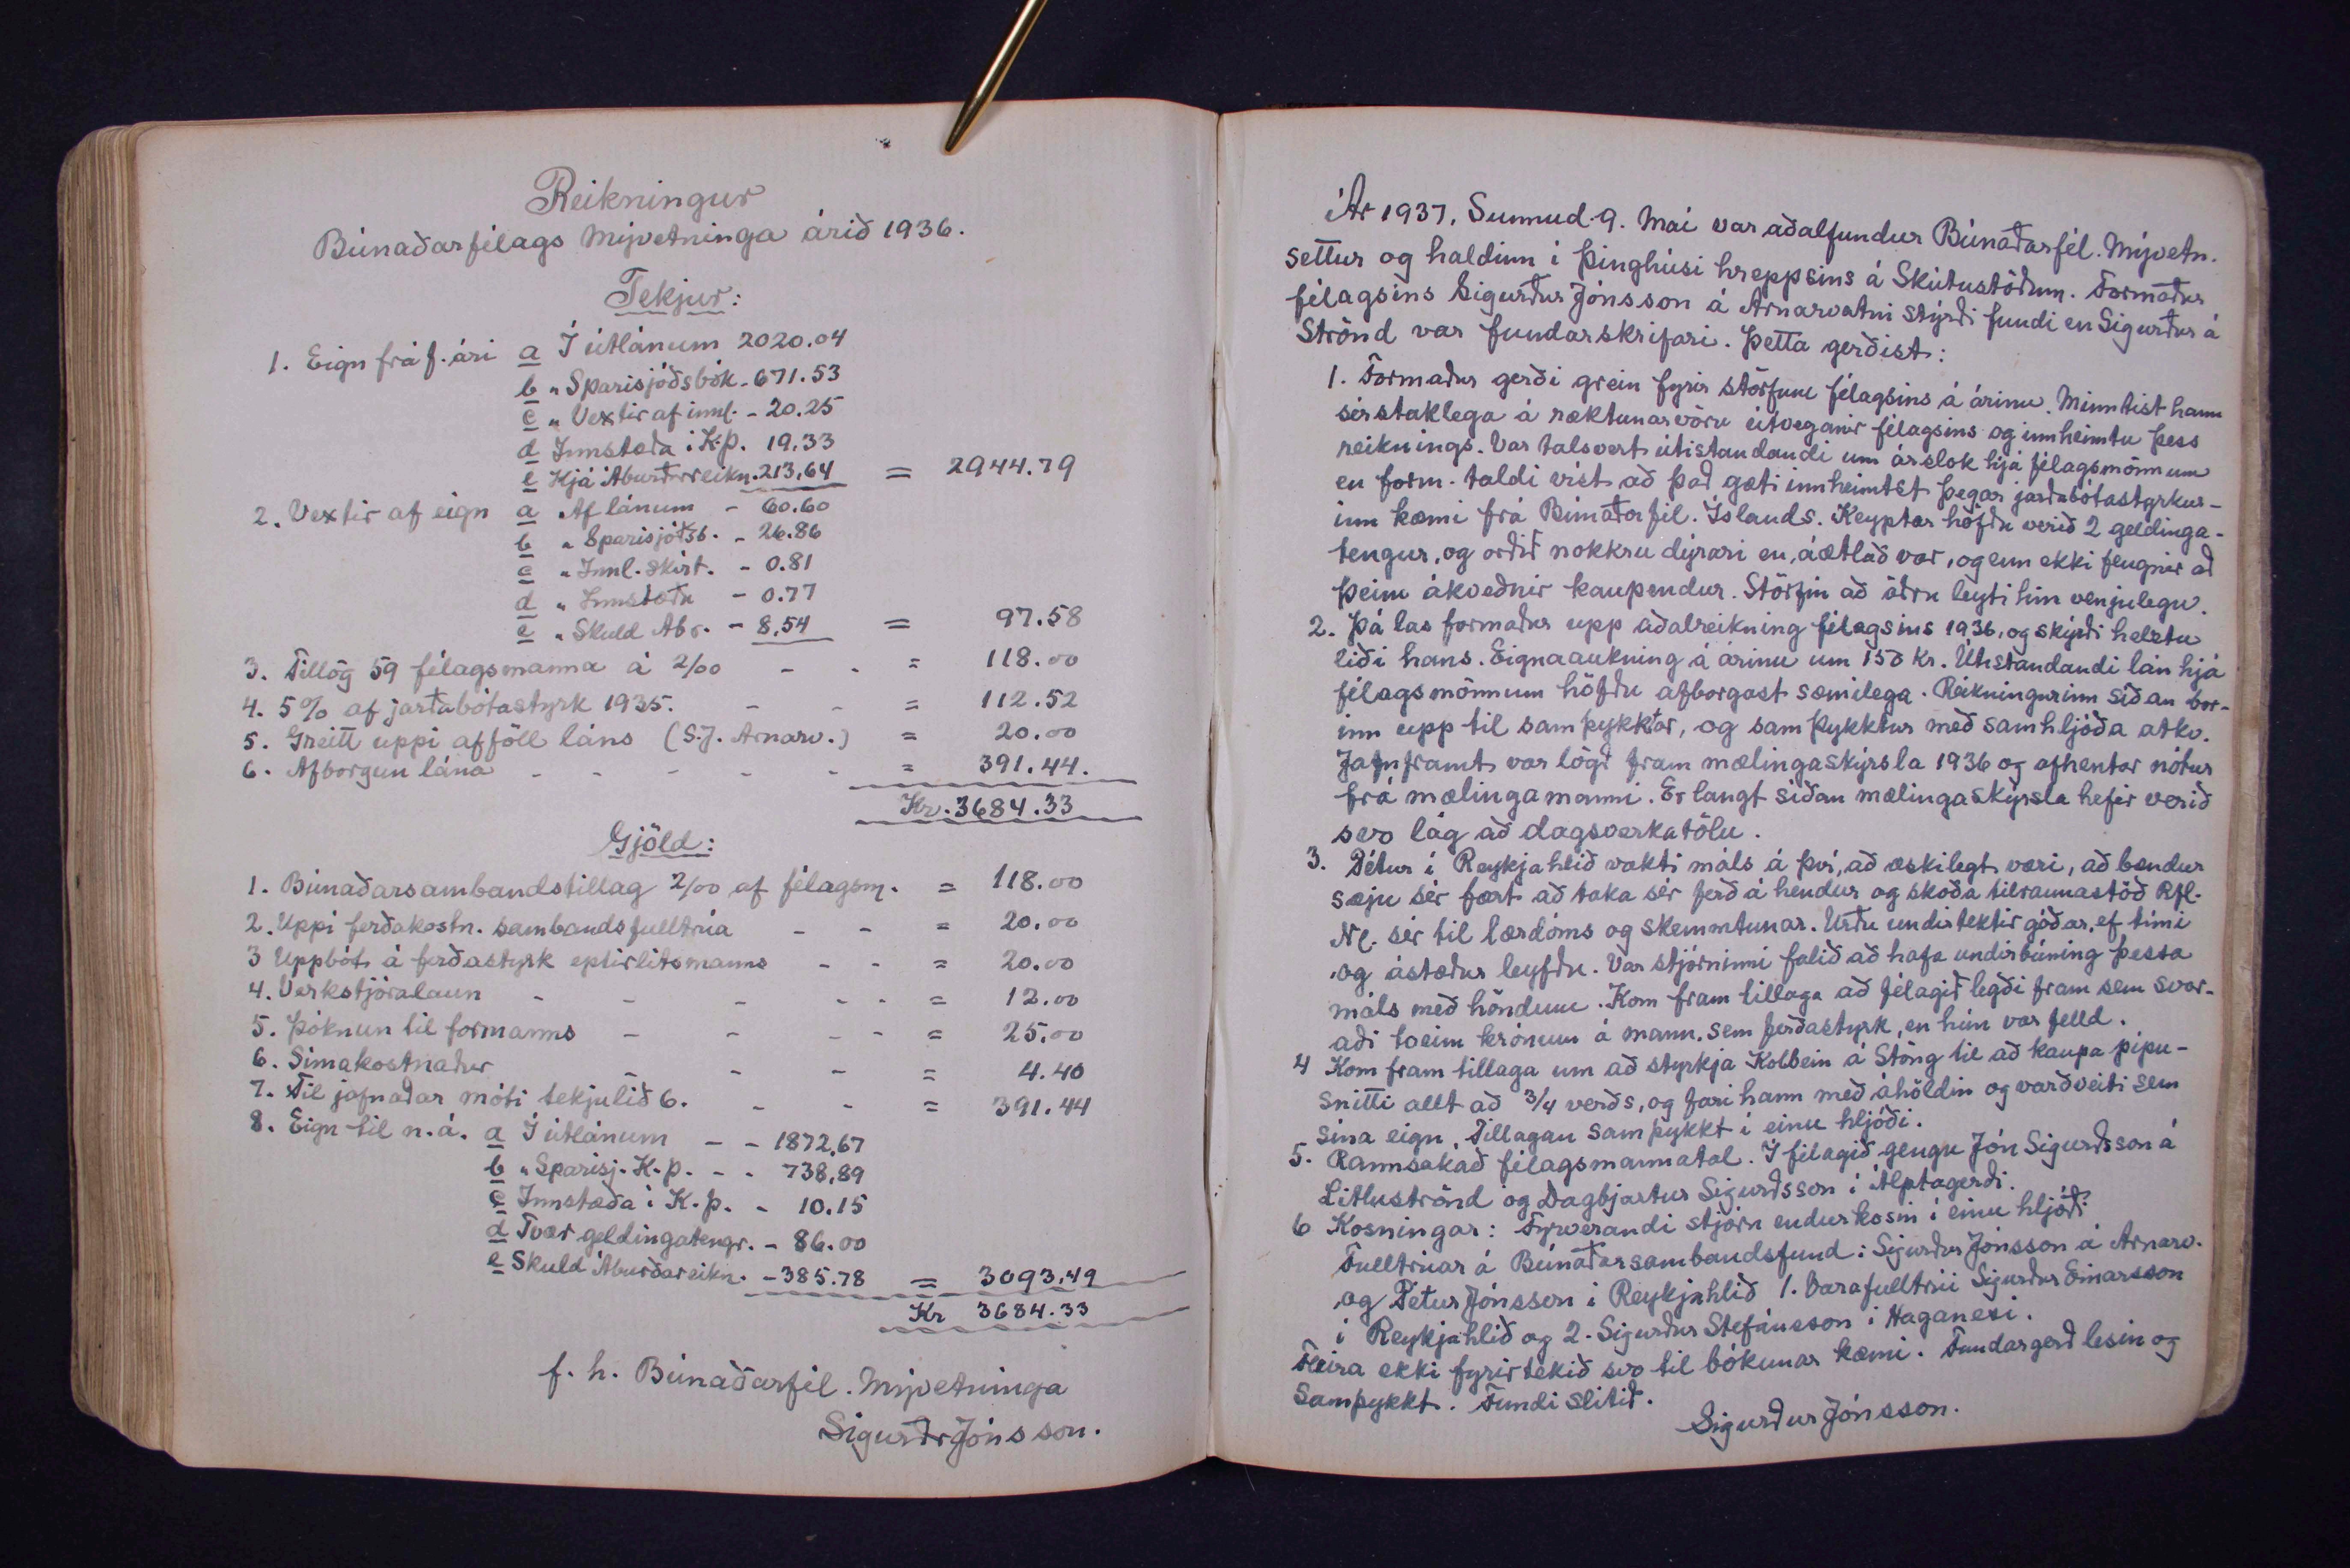 Reikningur
Búnaðarfélags Mývetninga árið 1936.
Tekjur:
1. Eign frá f. ári a Í útlánum 2020.04
b „ Sparisjóðsbók - 671.53
c „ Vextir af innl. - 20.25
d Innstæða í K.Þ. 19.33
e Hjá Áburðarreikn. 213,64 = 2944.79
2. Vextir af eign a Af lánum - 60.60
b „ Sparisjóðsb. - 26.86
c „ Innl. skírt. - 0.81
d „ Innstæðu - 0.77
e „ Skuld Abr. - 8,54 = 97.58
3. Tillög 59 félagsmanna á 2/00 - - = 118.00
4. 5% af jarðabótastyrk 1935. - - = 112.52
5. Greitt uppí afföll láns (S.J. Arnarv.) = 20.00
6. Afborgun lána - - - - - = 391.44.
Kr. 3684.33
Gjöld:
1. Búnaðarsambandstillag 2/00 af félagsm. = 118.00
2. Uppí ferðakostn. sambandsfulltrúa - - = 20.00
3 Uppbót á ferðastyrk eptirlitsmanns - - = 20.00
4. Verkstjóralaun - - - - - = 12.00
5. Þóknun til formanns - - - - = 25.00
6. Símakostnaður - - - = 4.40
7. Til jafnaðar móti tekjulið 6. - - = 391.44
8. Eign til n.á. a Í útlánum - - 1872,67
b „ Sparisj. K.Þ. - - 738,89
c Innstæða í K.Þ. - 10.15
d Tvær geldingatengr. - 86.00
e Skuld Áburðareikn. - 385.78 = 3093,49
Kr 3684.33
f. h. Búnaðarfél. Mývetninga
Sigurðr Jónsson.
Ár 1937, Sunnud. 9. Maí var aðalfundur Búnaðarfél. Mývetn.
settur og haldinn í þinghúsi hreppsins á Skútustöðum. Formaður
félagsins Sigurður Jónsson á Arnarvatni stýrði fundi en Sigurður á
Strönd var fundarskrifari. Þetta gerðist:
1. Formaður gerði grein fyrir störfum félagsins á árinu. Minntist hann
sérstaklega á ræktunarvöru útveganir félagsins og innheimtu þess
reiknings. Var talsvert útistandandi um árslok hjá félagsmönnum
en form. taldi víst að það gæti innheimtst þegar jarðabótastyrkur-
inn kæmi frá Búnaðarfél. Íslands. Keyptar höfðu verið 2 geldinga-
tengur, og orðið nokkru dýrari en áætlað var, og enn ekki fengnir að
þeim ákveðnir kaupendur. Störfin að öðru leyti hin venjulegu.
2. Þá las formaður upp aðalreikning félagsins 1936, og skýrði helztu
liði hans. Eignaaukning á árinu um 150 kr. Útistandandi lán hjá
félagsmönnum höfðu afborgast sæmilega. Reikningurinn síðan bor-
inn upp til samþykktar, og samþykktur með samhljóða atkv.
Jafnframt var lögð fram mælingaskýrsla 1936 og afhentar nótur
frá mælingamanni. Er langt síðan mælingaskýrsla hefir verið
svo lág að dagsverkatölu.
3. Pétur í Reykjahlíð vakti máls á því, að æskilegt væri, að bændur
sæju sér fært að taka sér ferð á hendur og skoða tilraunastöð Rfl.
Nl. sér til lærdóms og skemmtunar. Urðu undirtektir góðar, ef tími
og ástæður leyfðu. Var stjórninni falið að hafa undirbúning þessa
máls með höndum. Kom fram tillaga að félagið legði fram sem svar-
aði tveim krónum á mann, sem ferðastyrk, en hún var felld.
4 Kom fram tillaga um að styrkja Kolbein á Stöng til að kaupa pípu-
snitti allt að 3/4 verðs, og fari hann með áhöldin og varðveiti sem
sína eign. Tillagan samþykkt í einu hljóði.
5. Rannsakað félagsmannatal. Í félagið gengu Jón Sigurðsson á
Litluströnd og Dagbjartur Sigurðsson í Álptagerði.
6 Kosningar: Fyrverandi stjórn endurkosin í einu hljóði
Fulltrúar á Búnaðarsambandsfund: Sigurður Jónsson á Arnarv.
og Pétur Jónsson í Reykjahlíð 1. Varafulltrúi Sigurður Einarsson
í Reykjahlíð og 2. Sigurður Stefánsson í Haganesi.
Fleira ekki fyrirtekið svo til bókunar kæmi. Fundargerð lesin og
samþykkt. Fundi slitið.
Sigurður Jónsson.